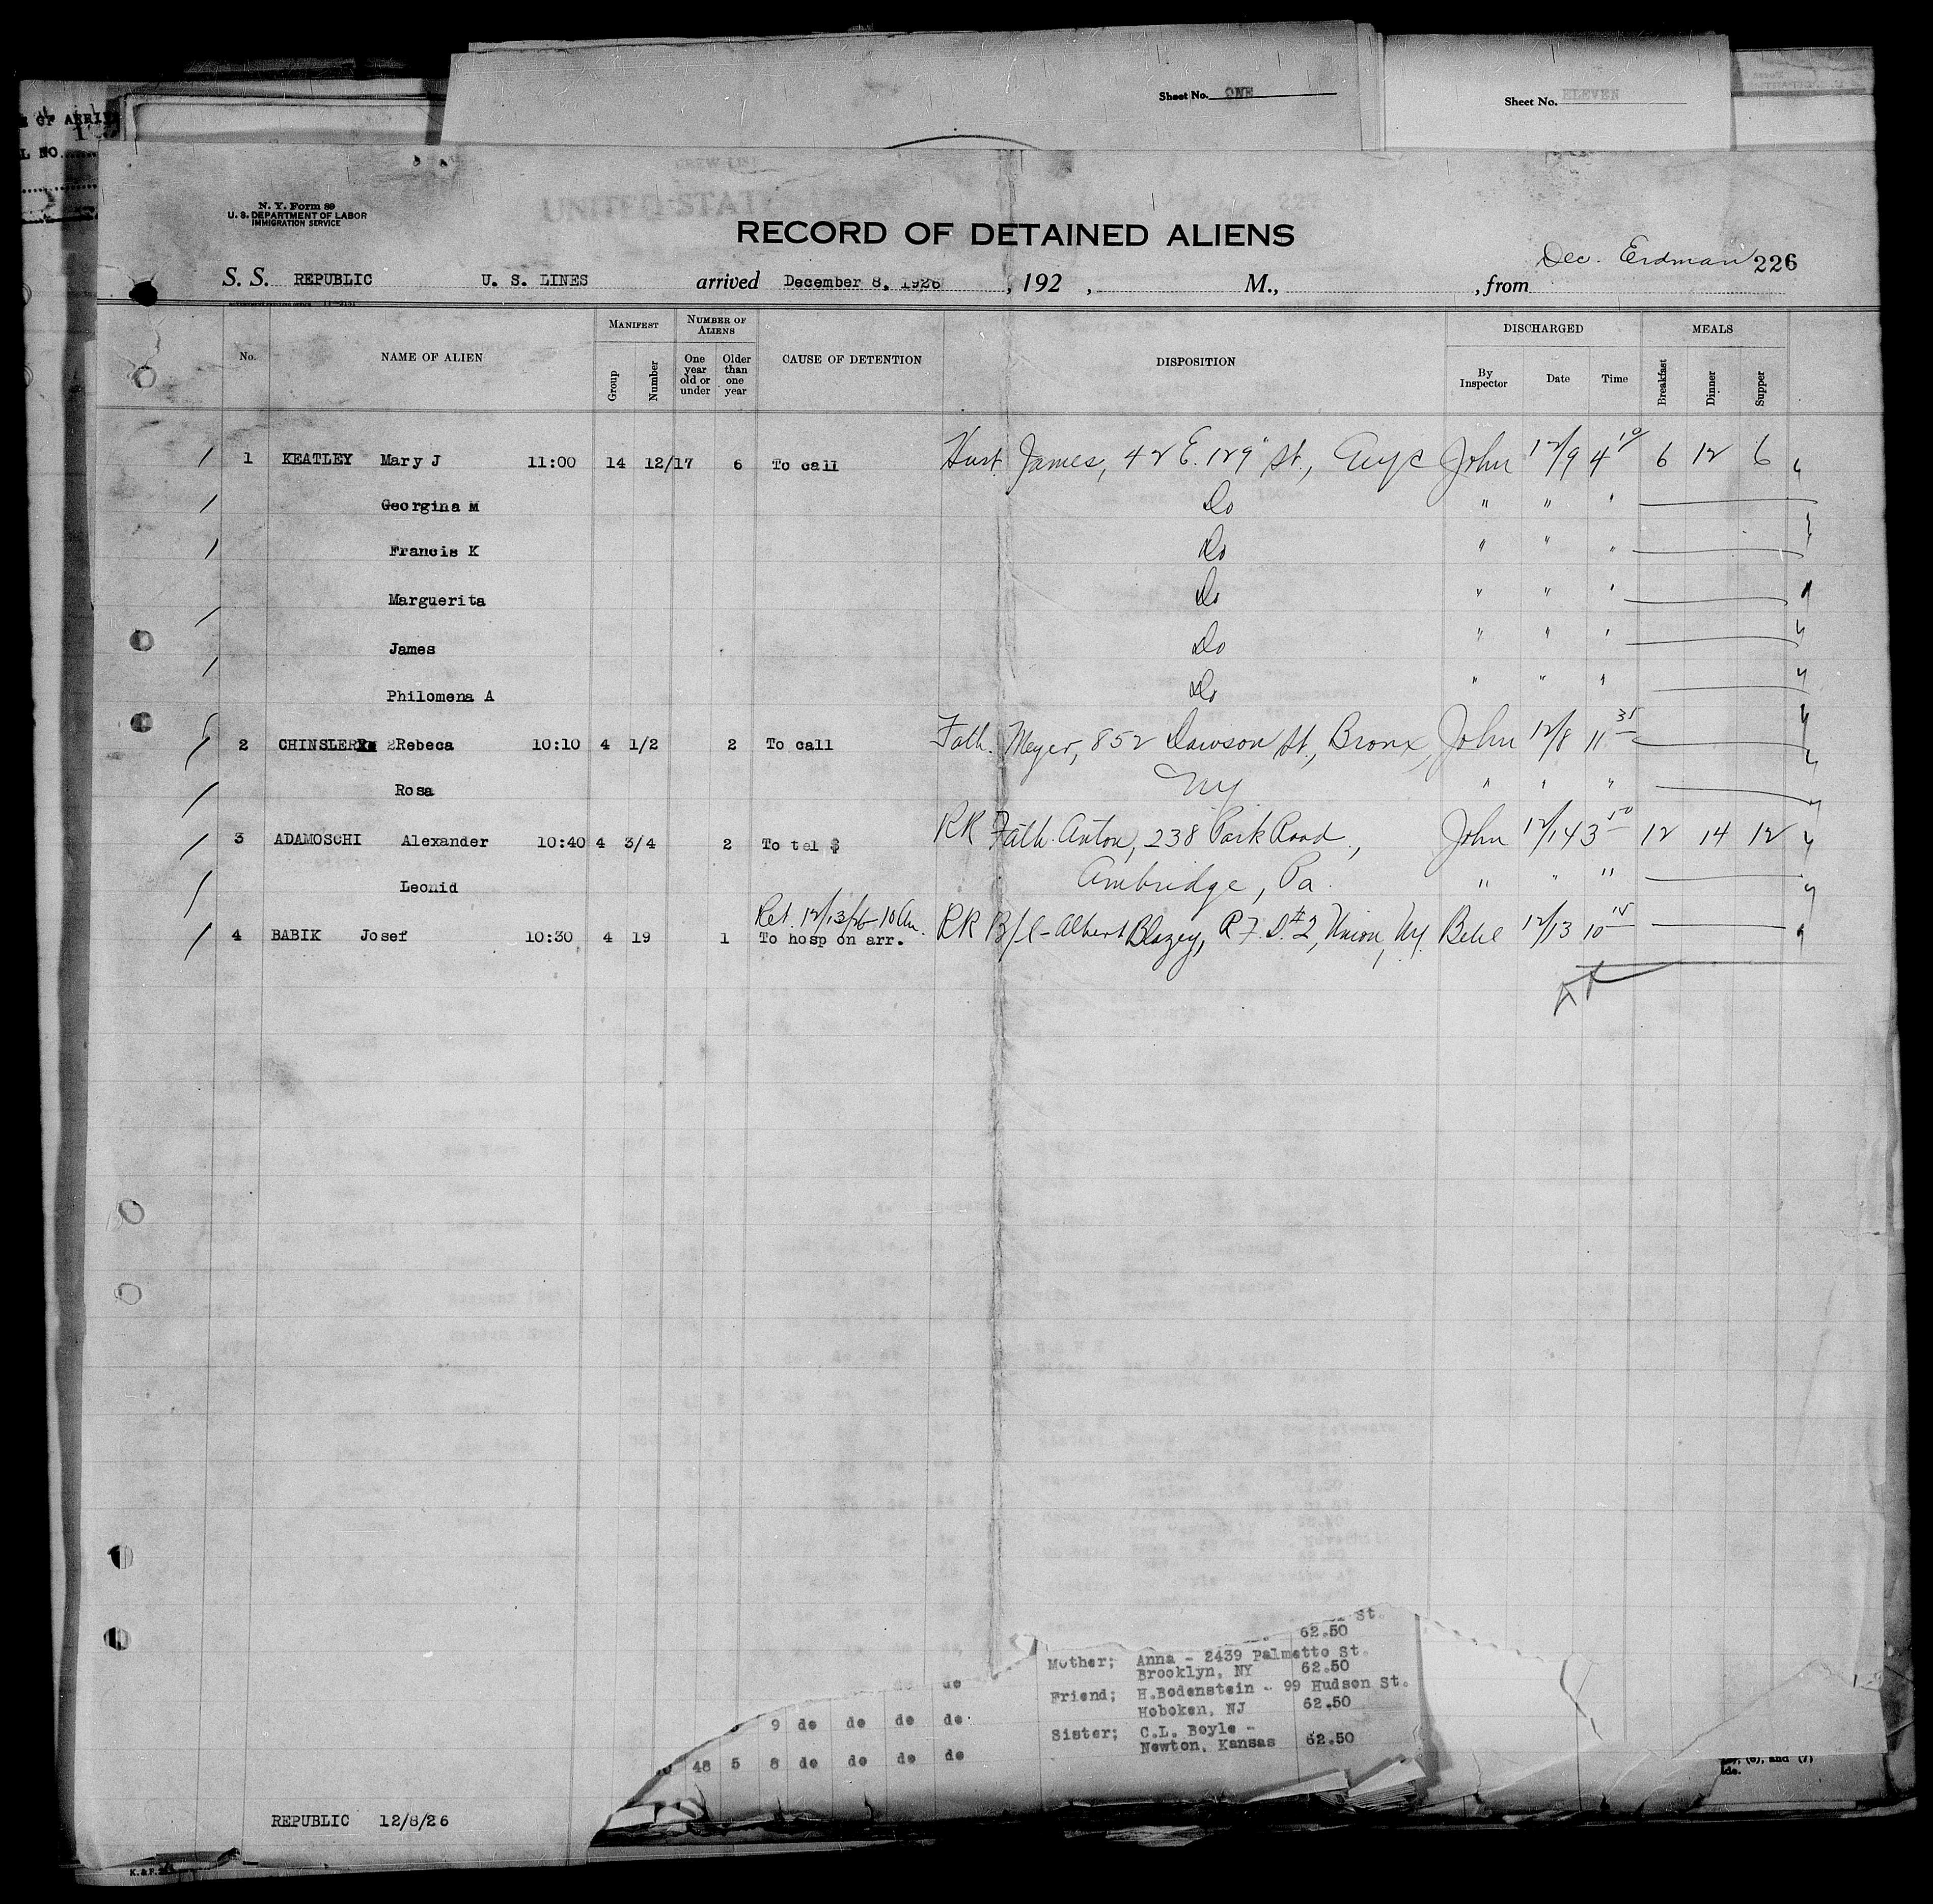 Sheet No. ONE
Sheet No. ELEVEN
OF ARRI
L NO.
CREW LIST
UNITED STAT
227
N. Y. Form 89
U. S. DEPARTMENT OF LABOR
IMMIGRATION SERVICE
RECORD OF DETAINED ALIENS
Dec. Erdman 226
S. S. REPUBLIC U. S. LINES arrived December 8, 1926 , 192 , M., , from
No. NAME OF ALIEN MANIFEST Group Number NUMBER OF ALIENS One year old or under Older than one year CAUSE OF DETENTION DISPOSITION DISCHARGED By Inspector Date Time MEALS Breakfast Dinner Supper
1 KEATLEY Mary J 11:00 14 12/17 6 To call James, 42 E. 129" St., NYC John 12/9 4 10 6 12 6
Georgina M Do " " "
Francis K Do " " "
Marguerita Do " " "
James Do " " "
Philomena A Do " " "
2 CHINSLER Rebeca 10:10 4 1/2 2 To call Fath. Meyer, 852 Dawson St., Bronx, John 12/8 11 35
Rosa NY " " "
3 ADAMOSCHI Alexander 10:40 4 3/4 2 To tel $ RR Fath. Anton, 238 Park Road, John 12/14 3 50 12 14 12
Leonid Ambridge, Pa. " " "
Ret. 12/13/26 - 10 Am.
4 BABIK Josef 10:30 4 19 1 To hosp on arr. RR B/l - Albert Blazey, R.F.D. #2, Union, NY. 12/13 10 15
St.
62.50
Mother; Anna - 2439 Palmetto St.
Brooklyn, NY 62.50
do de
Friend; H.Bodenstein - 99 Hudson St.
Hoboken, NJ 62.50
9 do de do de
Sister; C.L. Boyle -
Newton, Kansas 62.50
48 5 8 do de do de
(6), and (7)
REPUBLIC 12/8/26
K. & P.